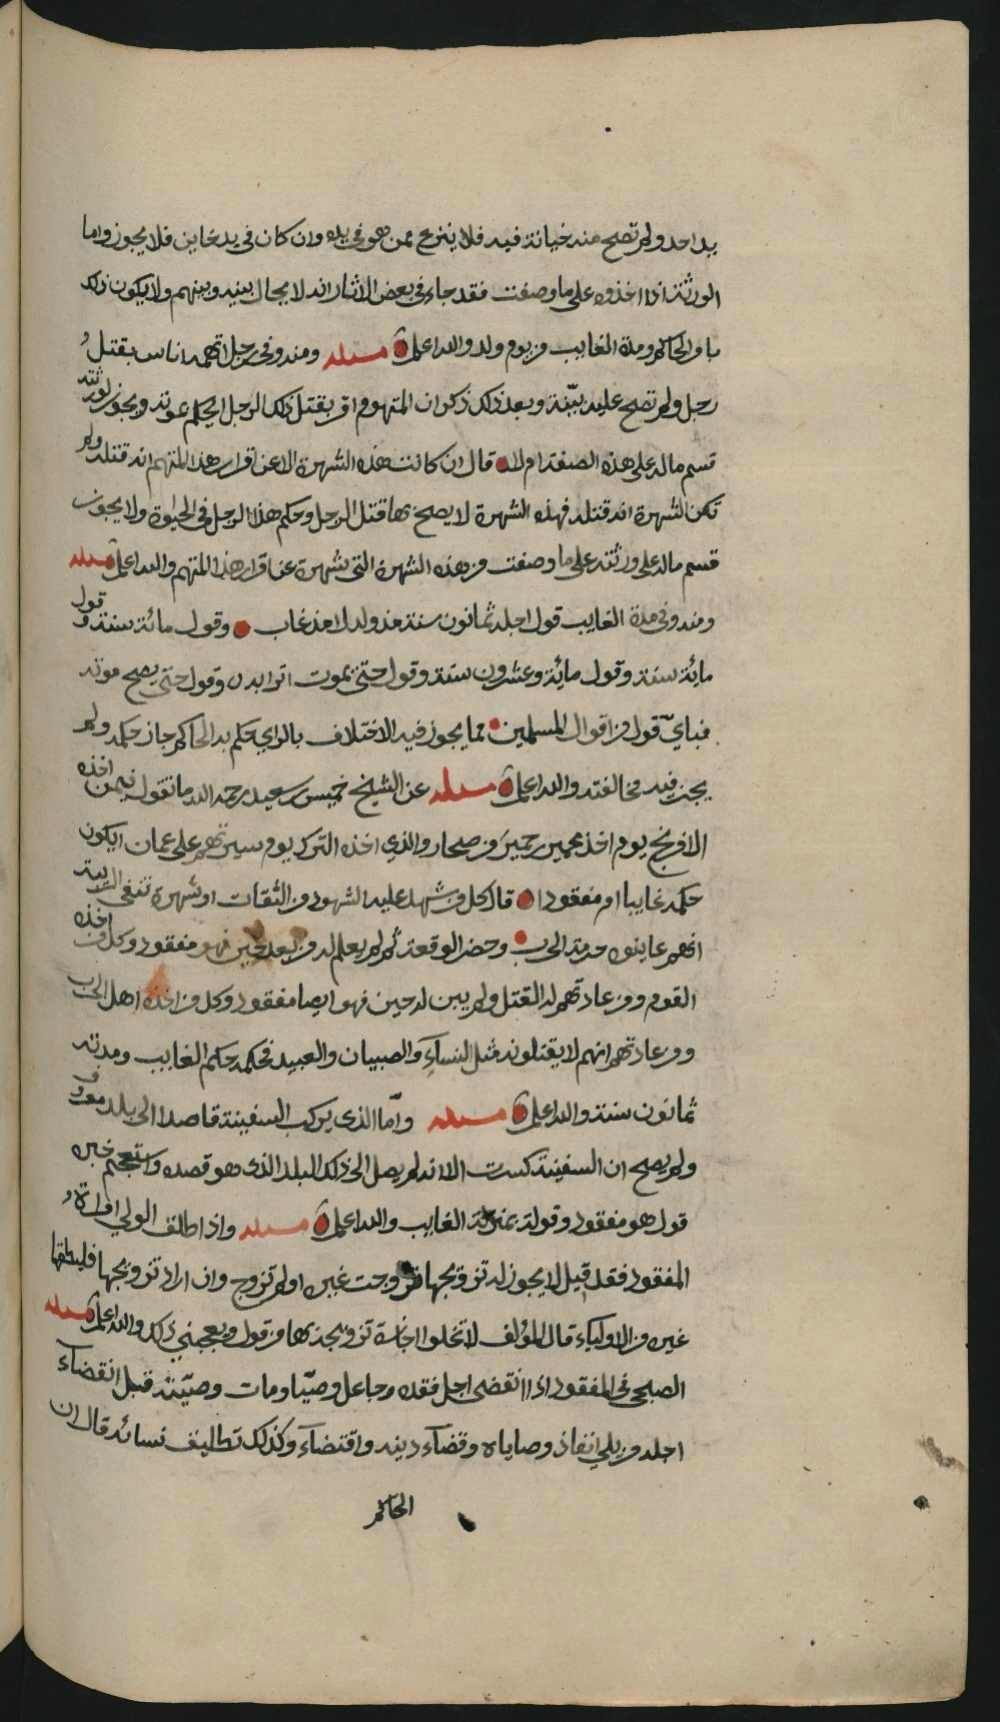 يد احد ولم تصح منه خيانة فيه فلا ينزع ممن هو في يده وان كان في يد خاين فلا يجوز واما
الورثة اذا اخذوه على ما وصفت فقد جاء في بعض الاثار انه لا يحال بينه وبينهم ولا يكون ذلك
با والحاكم ومدة الغايب من يوم ولد والله اعلم مسئله ومنه وفي رجل اتهمه اناس بقتل
رجل ولم تصح عليه بيّنة وبعد ذلك ذكر ان المتهوم اقر بقتل ذلك الرجل ايحكم بموته ويجوز لورثته
قسم ماله على هذه الصفة ام لا قال ان كانت هذه الشهرة الا عن اقرار هذا المتهم انه قتله ولم
تكن الشهرة انه قتله فهذه الشهرة لا يصح بها قتل الرجل وحكم هذا الرجل في الحيوة ولا يجوز
قسم ماله على ورثته على ما وصفت من هذه الشهرة التي شهرة عن اقرار هذا المتهم والله اعلم مسئله
ومنه وفي مدة الغايب قول اجله ثمانون سنة مذ ولد لا مذ غاب وقول مائة سنة وقول
مائة سنة وقول مائة وعشرون سنة وقول حتى يموت اترابه وقول حتى يصح موته
فباي قول من اقوال المسلمين مما يجوز فيه الاختلاف بالراي حكم به الحاكم جاز حكمه ولم
يجز فيه مخالفته والله اعلم مسئله عن الشيخ خميس بن سعيد رحمه الله ما تقول فيمن اخذه
الافرنج يوم اخذ محمد بن حمير من صحار والذي اخذه الترك يوم سيرتهم على عمان ايكون
حكمه غايبا ام مفقودا قال كل من شهد عليه الشهود من الثقات او شهرة تنفي الريبة
انهم عاينوه حومة الحرب وحضر الوقعة ثم لم يعلم له من بعد حين فهو مفقود وكل من اخذه
القوم ومن عادتهم له القتل ولم يبين له حين فهو ايضا مفقود وكل من اخذه اهل الحرب
ومن عادتهم انهم لا يقتلونه مثل النساء والصبيان والعبيد فحكمه حكم الغايب ومدته
ثمانون سنة والله اعلم مسئله وأما الذي يركب السفينة قاصدا الى بلد معروف
ولم يصح ان السفينة كسرت الا انه لم يصل الى ذلك البلد الذي هو قصده واستعجم خبره
قول هو مفقود وقول بمنزلة الغايب والله اعلم مسئله واذا طلق الولي امراة
المفقود فقد قيل لا يجوز له تزويجها تزوجت غيره او لم تزوج وان اراد تزويجها فليطلقها
غيره من الاولياء قال المؤلف لا تخلوا اجازة تزويجه بها من قول ويعجبني ذلك والله اعلم مسئله
الصبحي في المفقود اذا انقضى اجل فقده وجاعل وصيّا ومات وصيّه قبل انقضاء
اجله من يلي انفاذ وصاياه وقضاء دينه واقتضاء وكذلك تطليق نسائه قال ان
الحاكم